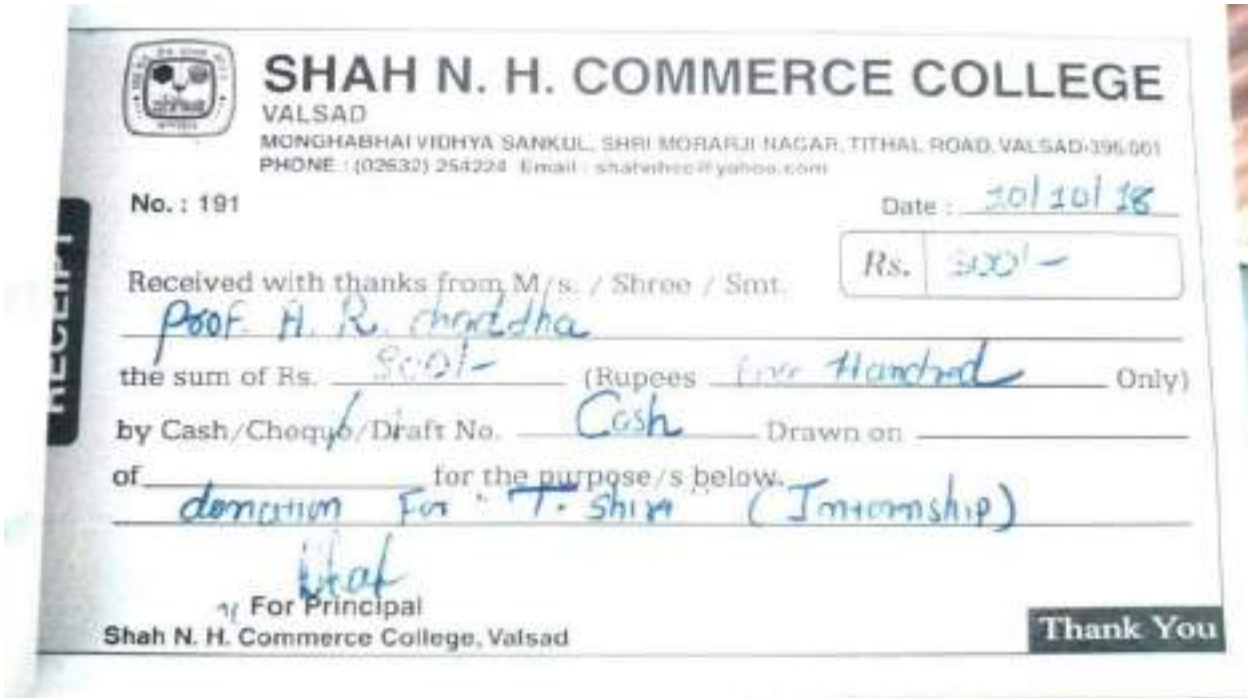 SHAH N. H. COMMERCE COLLEGE
VALSAD
MONGHABHAI VIDHYA SANKUL, SHRI MORARJI NAGAR, TITHAL ROAD, VALSAD-396 001
PHONE : (02632) 254224 Email : shahnhcc@yahoo.com
No. : 191
Date : 10/10/18
RECEIPT
Rs. 500/-
Received with thanks from M/s. / Shree / Smt.
Prof. H. R.
the sum of Rs. 500/- (Rupees Five Hundred Only)
by Cash/Cheque/Draft No. Cash Drawn on
of for the purpose/s below.
donation For "T. Shirt" (Internship)
For Principal
Shah N. H. Commerce College, Valsad
Thank You